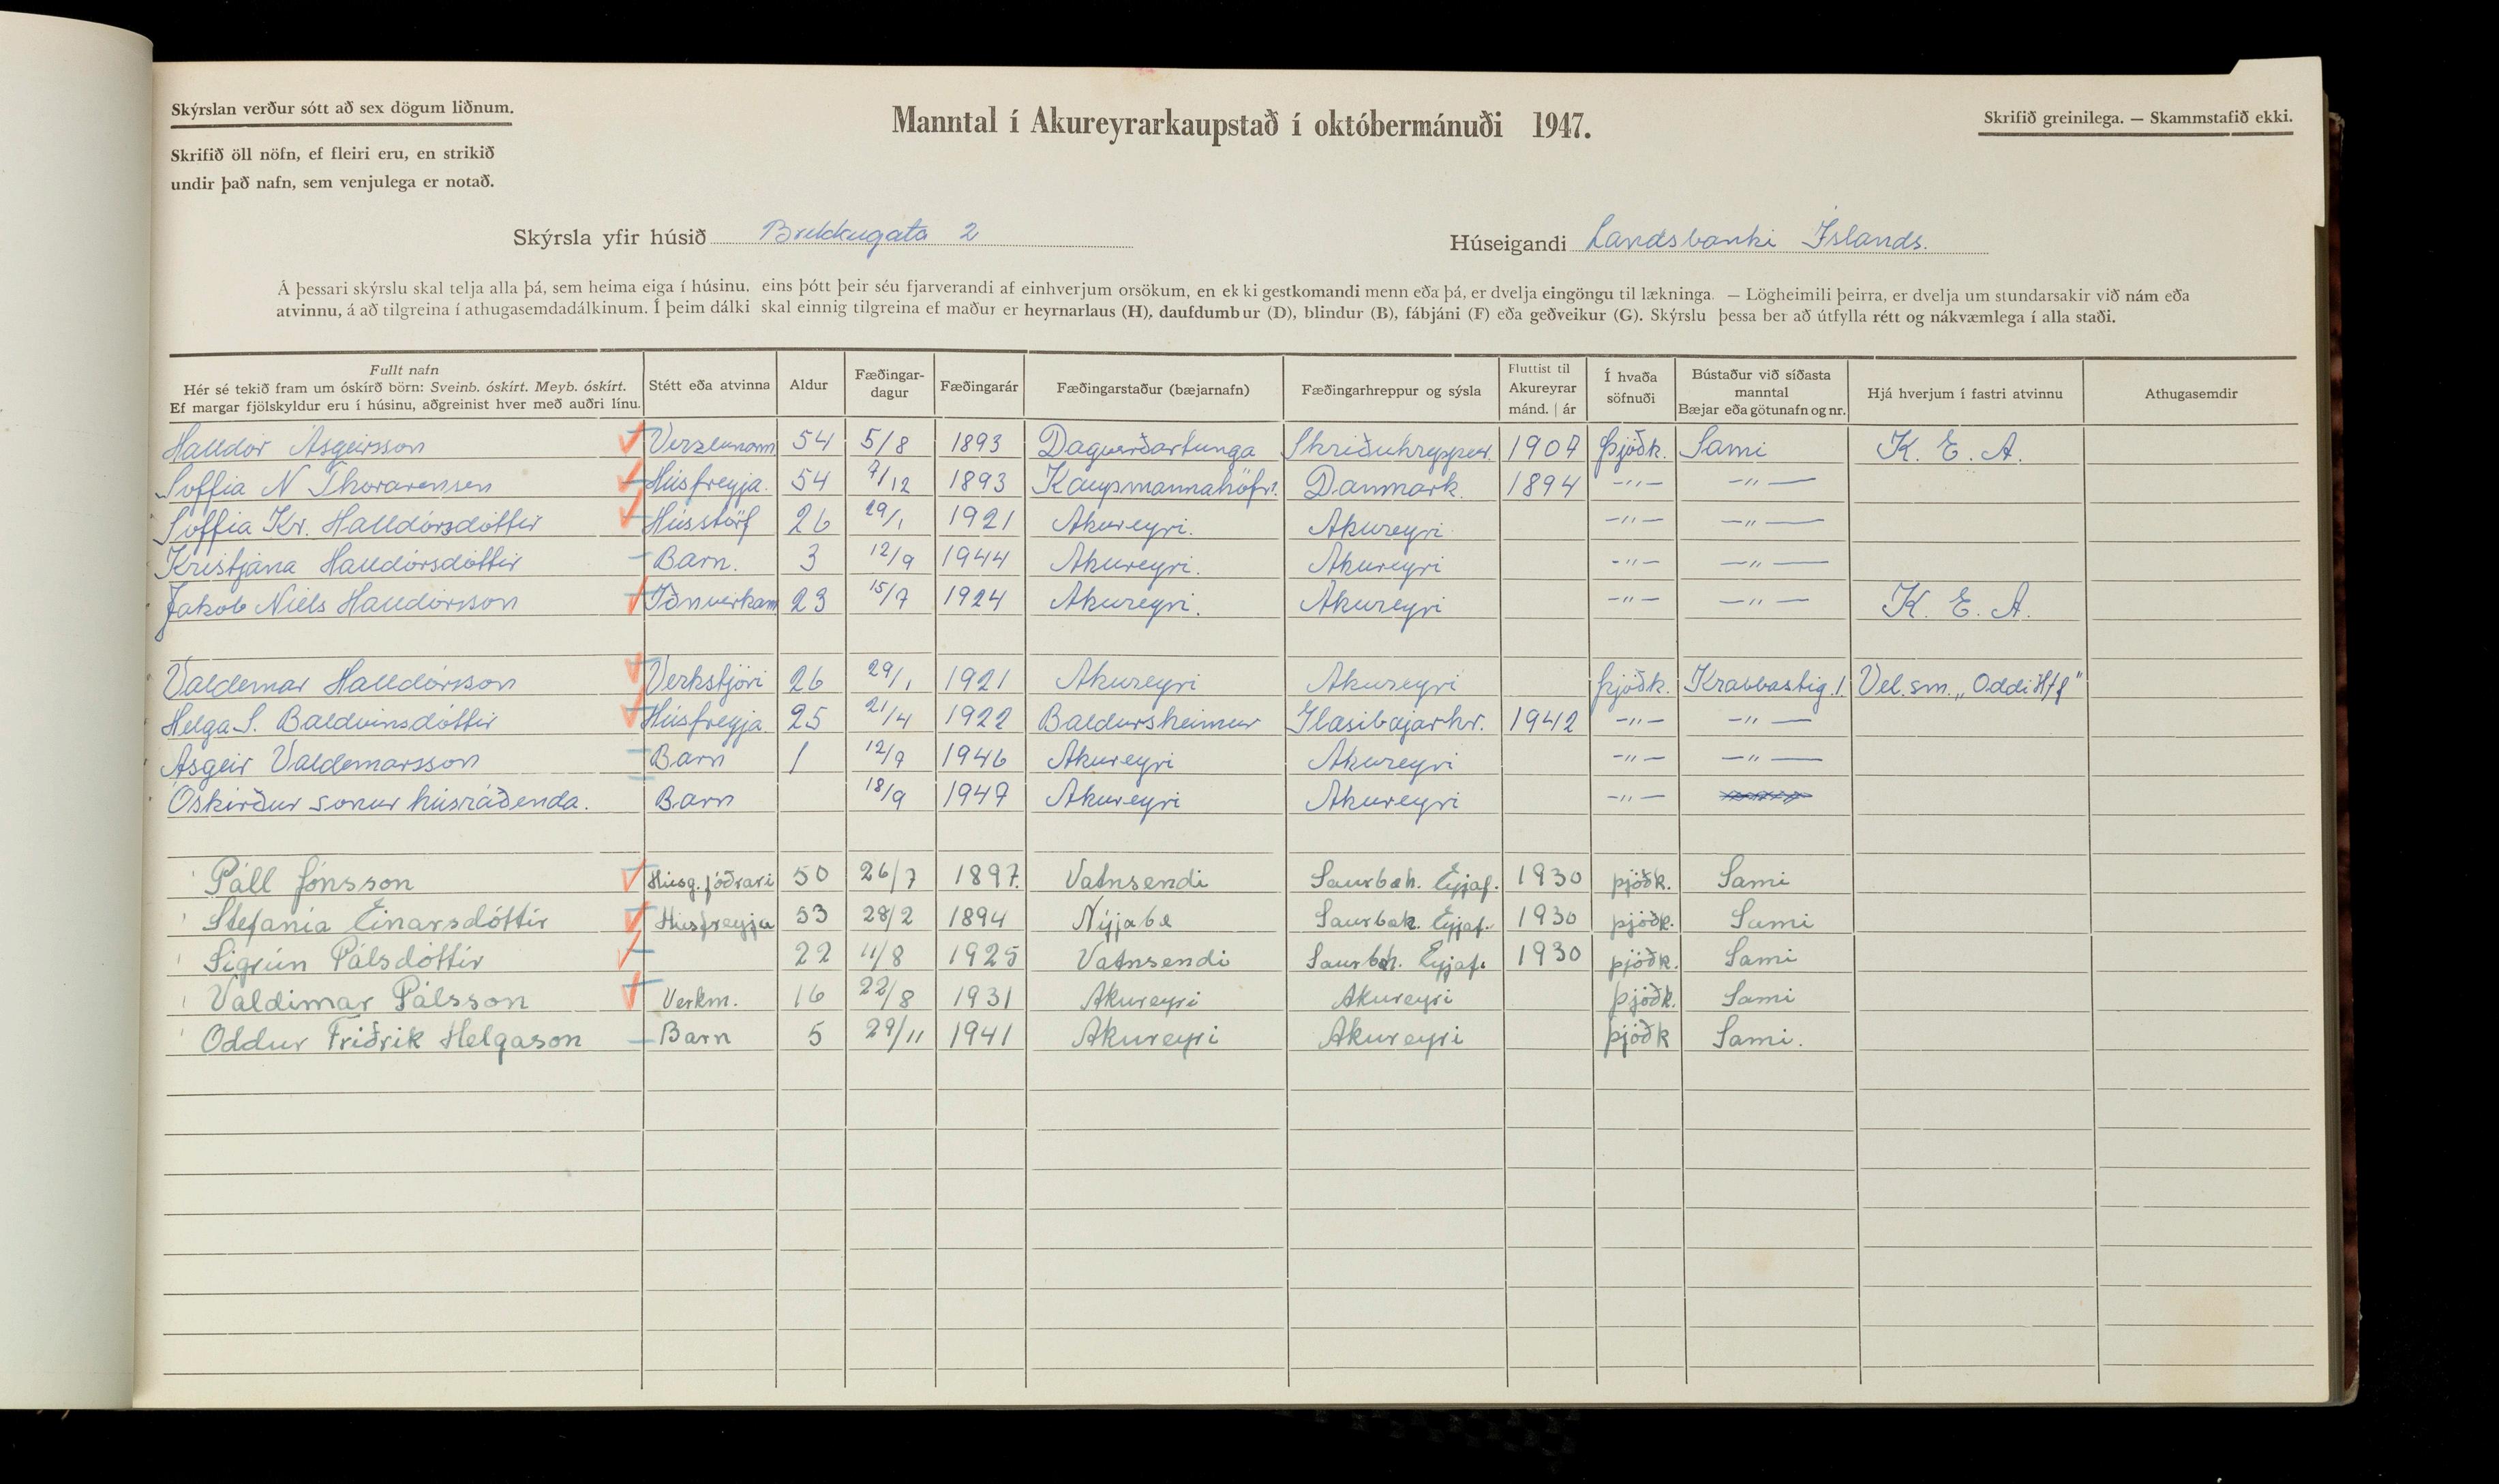 Skýrslan verður sótt að sex dögum liðnum.
Manntal í Akureyrarkaupstað í októbermánuði 1947.
Skrifið greinilega. — Skammstafið ekki.
Skrifið öll nöfn, ef fleiri eru, en strikið
undir það nafn, sem venjulega er notað.
Skýrsla yfir húsið Brekkugata 2 Húseigandi Landsbanki Íslands.
Á þessari skýrslu skal telja alla þá, sem heima eiga í húsinu, eins þótt þeir séu fjarverandi af einhverjum orsökum, en ekki gestkomandi menn eða þá, er dvelja eingöngu til lækninga. — Lögheimili þeirra, er dvelja um stundarsakir við nám eða
atvinnu, á að tilgreina í athugasemdadálkinum. Í þeim dálki skal einnig tilgreina ef maður er heyrnarlaus (H), daufdumbur (D), blindur (B), fábjáni (F) eða geðveikur (G). Skýrslu þessa ber að útfylla rétt og nákvæmlega í alla staði.
Fullt nafn
Hér sé tekið fram um óskírð börn: Sveinb. óskírt. Meyb. óskírt.
Ef margar fjölskyldur eru í húsinu, aðgreinist hver með auðri línu.
Stétt eða atvinna
Aldur
Fæðingar-
dagur
Fæðingarár
Fæðingarstaður (bæjarnafn)
Fæðingarhreppur og sýsla
Fluttist til
Akureyrar
mánd. | ár
Í hvaða
söfnuði
Bústaður við síðasta
manntal
Bæjar eða götunafn og nr.
Hjá hverjum í fastri atvinnu
Athugasemdir
Halldór Ásgeirsson Verzlunarm 54 5/8 1893 Dagverðartunga Skriðuhreppur. 1907 Þjóðk. Sami K. E. A.
Soffia N Thorarensen Húsfreyja. 54 7/12 1893 Kaupmannahöfn. Danmark. 1894 -"- -"-
Soffia Kr. Halldórsdóttir Hússtörf 26 29/1 1921 Akureyri. Akureyri -"- -"-
Kristjána Halldórsdóttir Barn. 3 12/9 1944 Akureyri. Akureyri -"- -"-
Jakob Níels Halldórsson Iðnverkam 23 15/7 1924 Akureyri. Akureyri -"- -"- K. E. A.
Valdemar Halldórsson Verkstjóri 26 29/1 1921 Akureyri Akureyri þjóðk. Krabbastig. 1 Vel.sm. „Oddi H/f"
Helga S. Baldvinsdóttir Húsfreyja. 25 21/4 1922 Baldursheimur Glæsibæjarhr. 1942 -"- -"-
Ásgeir Valdemarsson Barn 1 12/7 1946 Akureyri Akureyri -"- -"-
Óskirður sonur húsráðenda. Barn 18/9 1947 Akureyri Akureyri -"-
Páll Jónsson Húsg. fóðrari 50 26/7 1897. Vatnsendi Saurbæh. Eyjaf. 1930 þjóðk. Sami
Stefanía Einarsdóttir Húsfreyja 53 28/2 1894 Nýjabæ Saurbæh. Eyjaf. 1930 þjóðk. Sami
Sigrún Pálsdóttir 22 11/8 1925 Vatnsendi Saurbæh. Eyjaf. 1930 þjóðk. Sami
Valdimar Pálsson Verkm. 16 22/8 1931 Akureyri Akureyri þjóðk. Sami
Oddur Friðrik Helgason Barn 5 29/11 1941 Akureyri Akureyri þjóðk Sami.